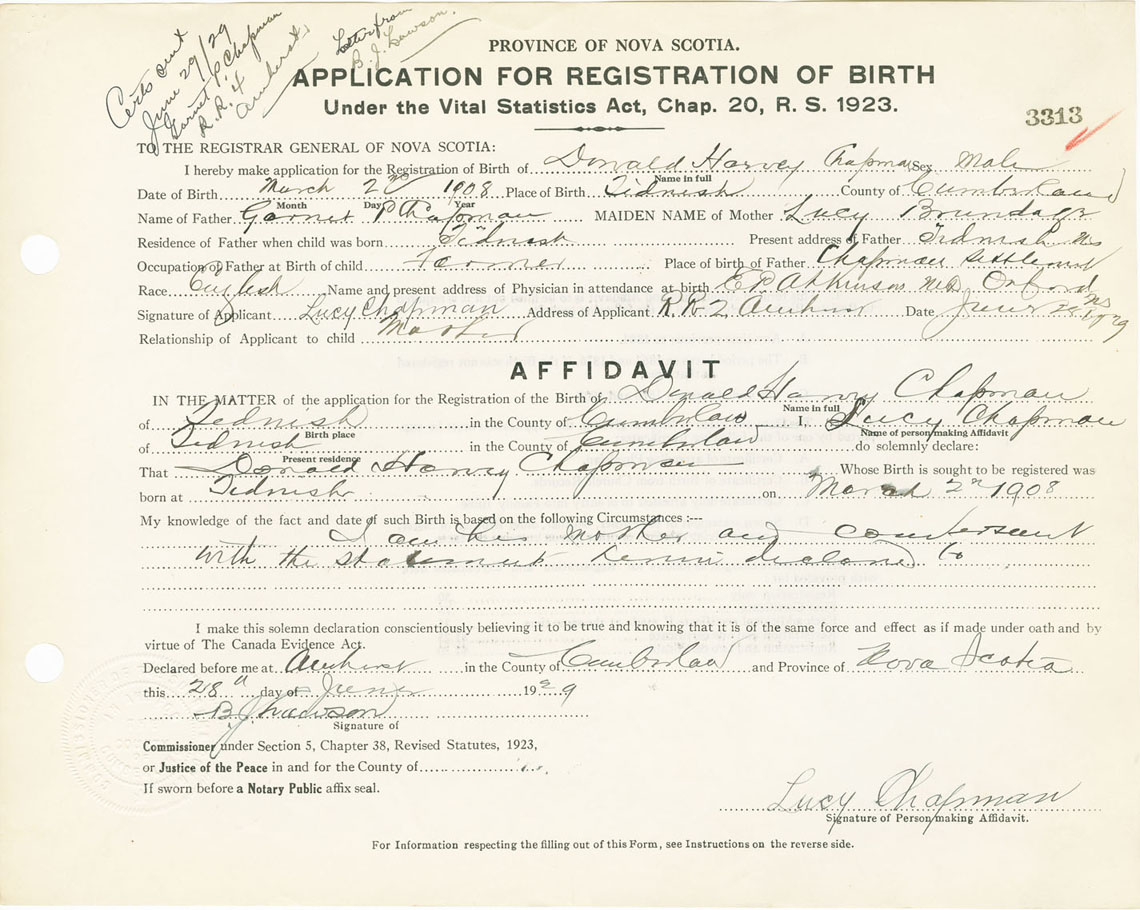 Certs sent
June 29/29
Garnet P. Chapman
R.R. 4
Amherst
Letter from
B. J. Lawson.
PROVINCE OF NOVA SCOTIA.
APPLICATION FOR REGISTRATION OF BIRTH
Under the Vital Statistics Act, Chap. 20, R. S. 1923.
3313
TO THE REGISTRAR GENERAL OF NOVA SCOTIA:
I hereby make application for the Registration of Birth of Donald Harvey Chapman Sex Male
Name in full
Date of Birth March 2nd 1908 Place of Birth Tidnish County of Cumberland
Month Day Year
Name of Father Garnet P Chapman MAIDEN NAME of Mother Lucy Brundage
Residence of Father when child was born Tidnish Present address of Father Tidnish NS
Occupation of Father at Birth of child Farmer Place of birth of Father Chapman Settlement
Race English Name and present address of Physician in attendance at birth E.P. Atkinson M.D. Oxford NS
Signature of Applicant Lucy Chapman Address of Applicant R.R. 2 Amherst Date June 28 1929
Relationship of Applicant to child Mother
AFFIDAVIT
IN THE MATTER of the application for the Registration of the Birth of Donald Harvey Chapman
Name in full
of Tidnish in the County of Cumberland I, Lucy Chapman
Birth place Name of person making Affidavit
of Tidnish in the County of Cumberland do solemnly declare:
Present residence
That Donald Harvey Chapman Whose Birth is sought to be registered was
born at Tidnish on March 2nd 1908
My knowledge of the fact and date of such Birth is based on the following Circumstances :---
I am his mother and conversant
with the statement herein declared to
I make this solemn declaration conscientiously believing it to be true and knowing that it is of the same force and effect as if made under oath and by
virtue of The Canada Evidence Act.
Declared before me at Amherst in the County of Cumberland and Province of Nova Scotia
this 28th day of June 1929
B. J. Lawson
Signature of
Commissioner under Section 5, Chapter 38, Revised Statutes, 1923,
or Justice of the Peace in and for the County of
If sworn before a Notary Public affix seal.
Lucy Chapman
Signature of Person making Affidavit.
For Information respecting the filling out of this Form, see Instructions on the reverse side.